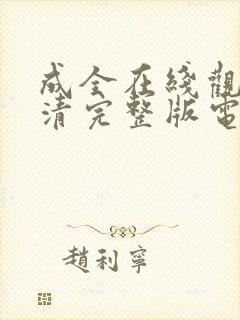 成全在綫觀
清完整版電
趙利寧